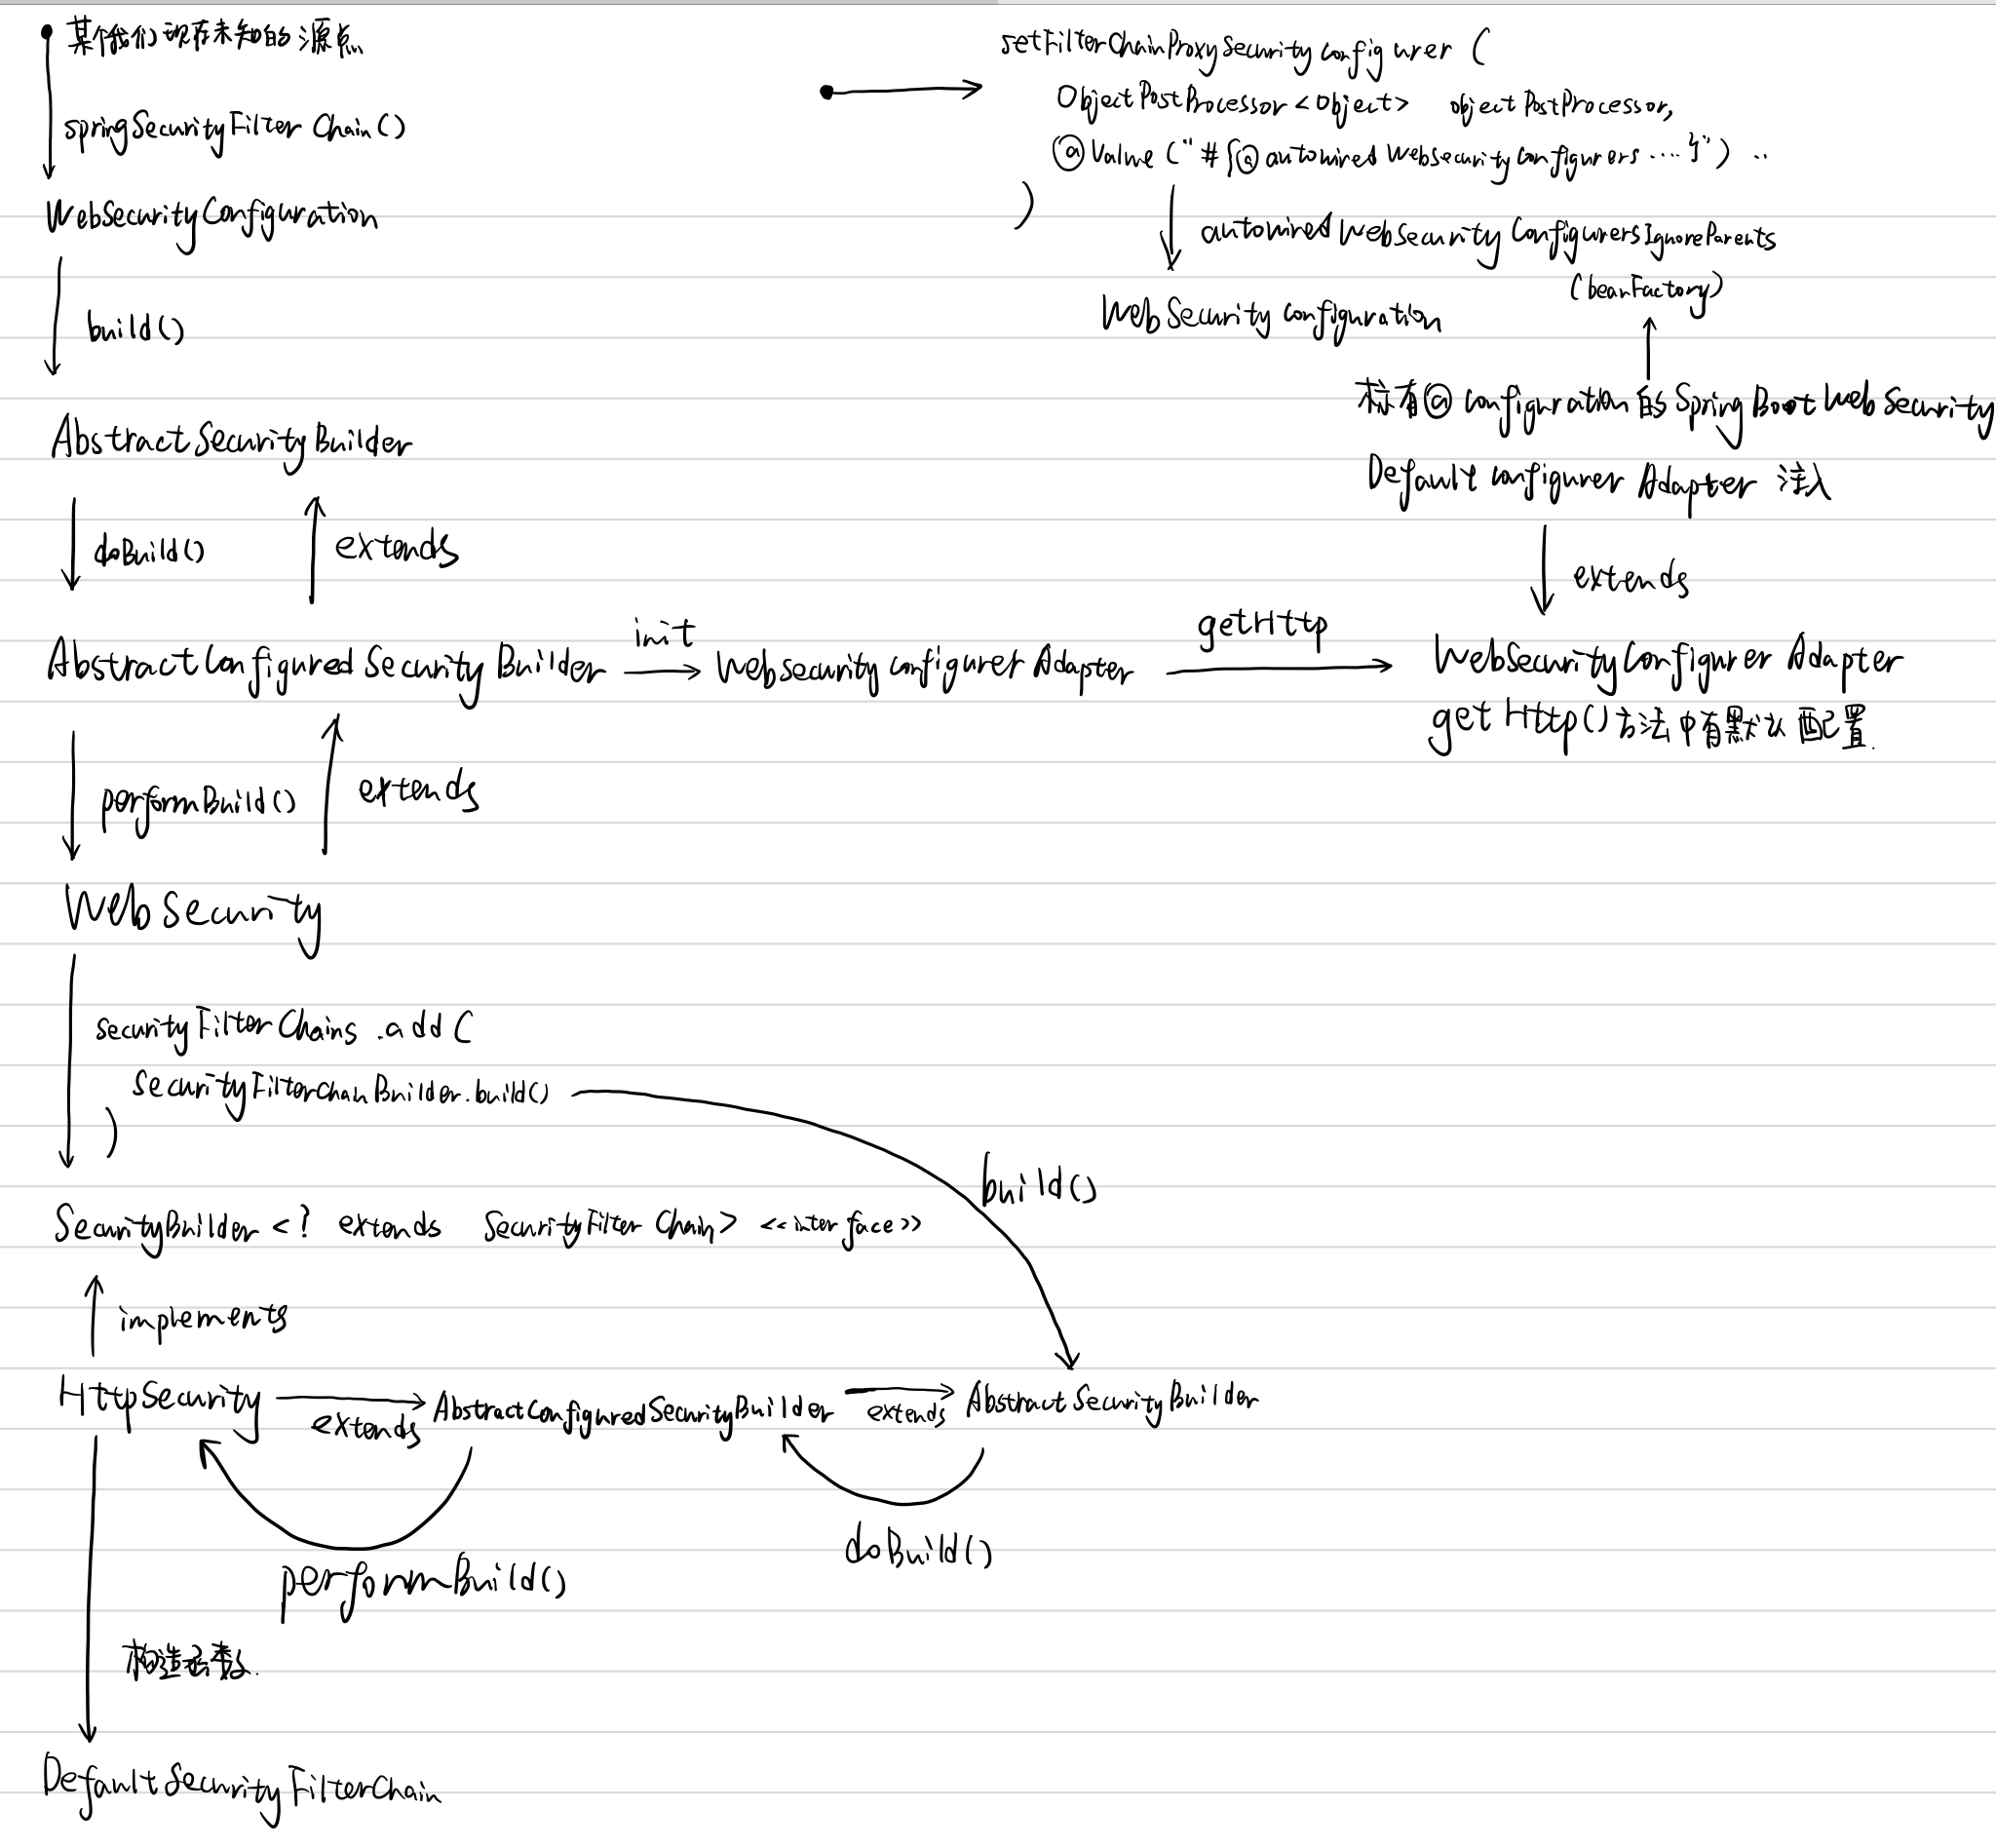 某个我们现在未知的源点
springSecurityFilterChain()
WebSecurityConfiguration
build()
AbstractSecurityBuilder
doBuild()
extends
AbstractConfiguredSecurityBuilder
init
WebSecurityConfigurerAdapter
getHttp
WebSecurityConfigurerAdapter
getHttp()方法中有默认配置.
performBuild()
extends
WebSecurity
securityFilterChains.add(
securityFilterChainBuilder.build()
)
build()
SecurityBuilder<? extends SecurityFilterChain> <<interface>>
implements
HttpSecurity
extends
AbstractConfiguredSecurityBuilder
extends
AbstractSecurityBuilder
performBuild()
doBuild()
构造函数.
DefaultSecurityFilterChain
setFilterChainProxySecurityConfigurer(
ObjectPostProcessor<Object> objectPostProcessor,
@Value("#{@autowiredWebSecurityConfigurers....}") ..
)
autowiredWebSecurityConfigurersIgnoreParents
(beanFactory)
WebSecurityConfiguration
标有@Configuration的SpringBootWebSecurity
DefaultConfigurerAdapter 注入
extends